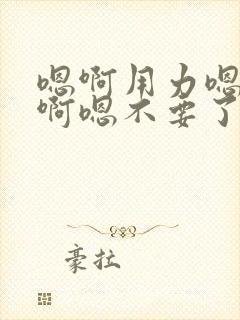 嗯啊用力嗯
啊嗯不要了
豪拉